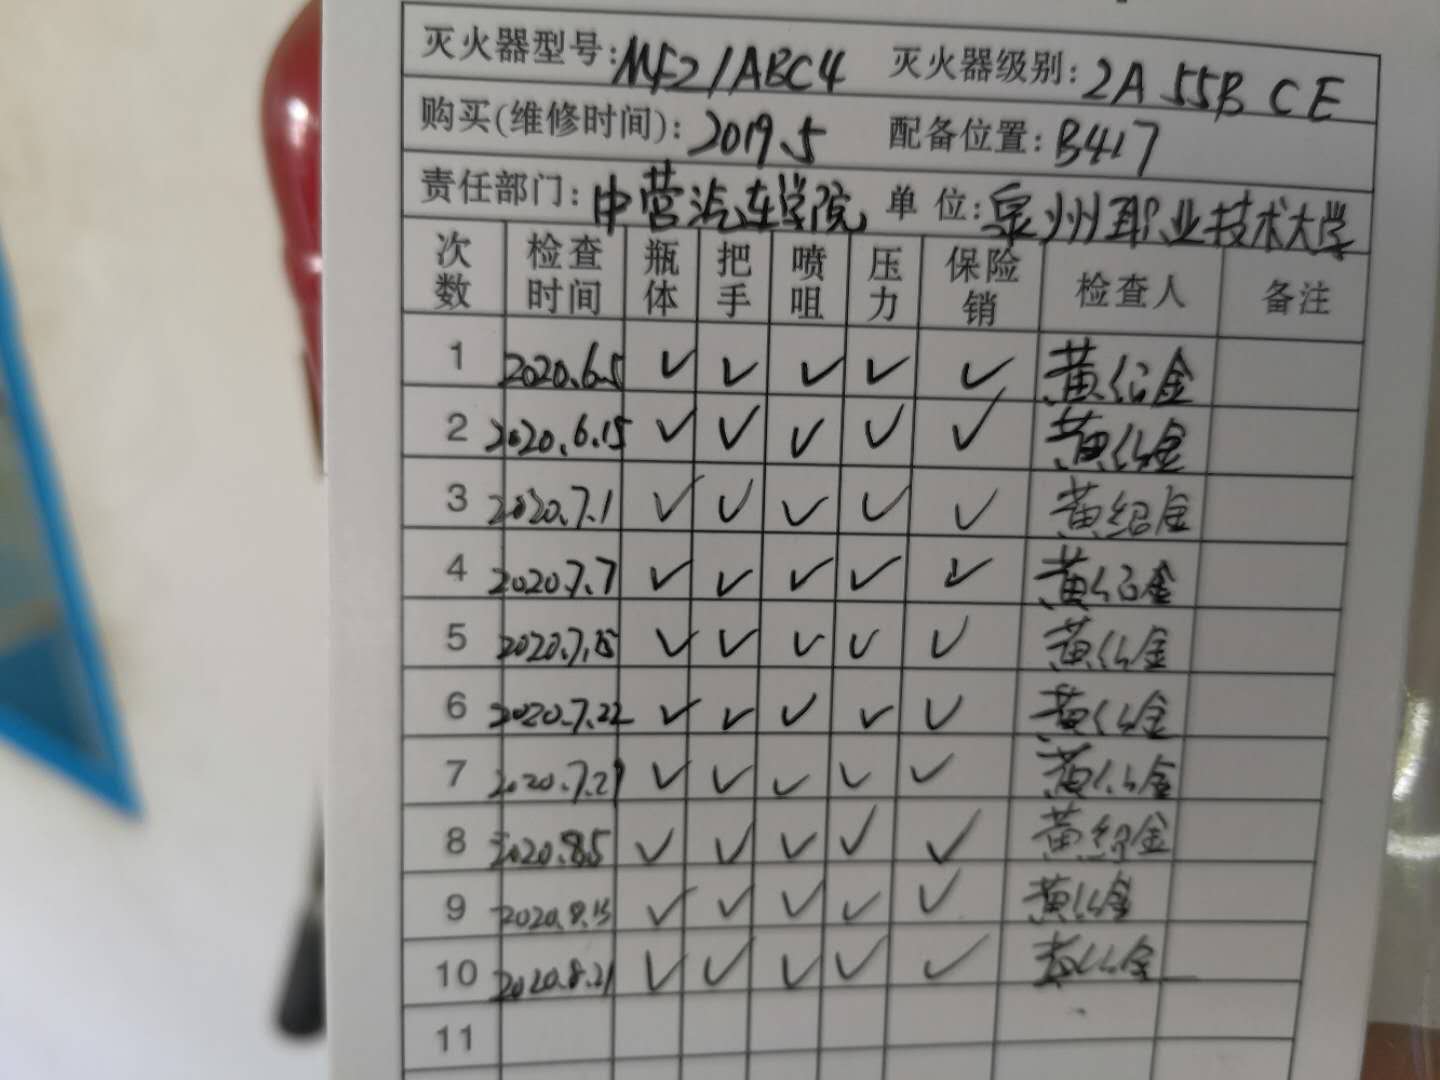 灭火器型号:MFZ/ABC4 灭火器级别:2A 55B C E
购买(维修时间):2019.5 配备位置:B417
责任部门:中营汽车学院 单位:泉州职业技术大学
次数 检查时间 瓶体 把手 喷咀 压力 保险销 检查人 备注
1 2020.6.5 ✓ ✓ ✓ ✓ ✓ 黄绍金
2 2020.6.15 ✓ ✓ ✓ ✓ ✓ 黄绍金
3 2020.7.1 ✓ ✓ ✓ ✓ ✓ 黄绍金
4 2020.7.7 ✓ ✓ ✓ ✓ ✓ 黄绍金
5 2020.7.15 ✓ ✓ ✓ ✓ ✓ 黄绍金
6 2020.7.22 ✓ ✓ ✓ ✓ ✓ 黄绍金
7 2020.7.29 ✓ ✓ ✓ ✓ ✓ 黄绍金
8 2020.8.5 ✓ ✓ ✓ ✓ ✓ 黄绍金
9 2020.8.15 ✓ ✓ ✓ ✓ ✓ 黄绍金
10 2020.8.21 ✓ ✓ ✓ ✓ ✓ 黄绍金
11